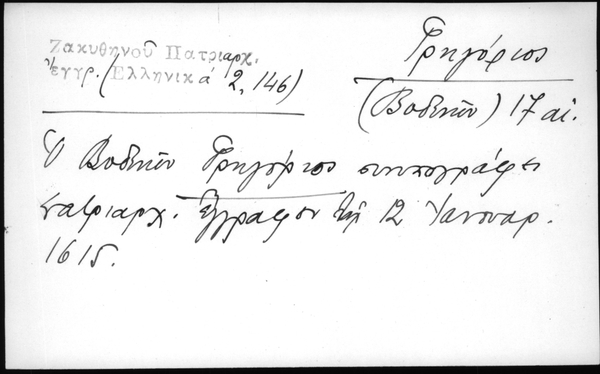 Ζακυθηνοῦ Πατριαρχ.
ἔγγρ. (Ἑλληνικά 2, 146)
Γρηγόριος
(Βοδενῶν) 17 αἰ.
Ὁ Βοδενῶν Γρηγόριος συνυπογράφει
πατριαρχ. ἔγγραφον τῇ 12 Ἰανουαρ.
1615.